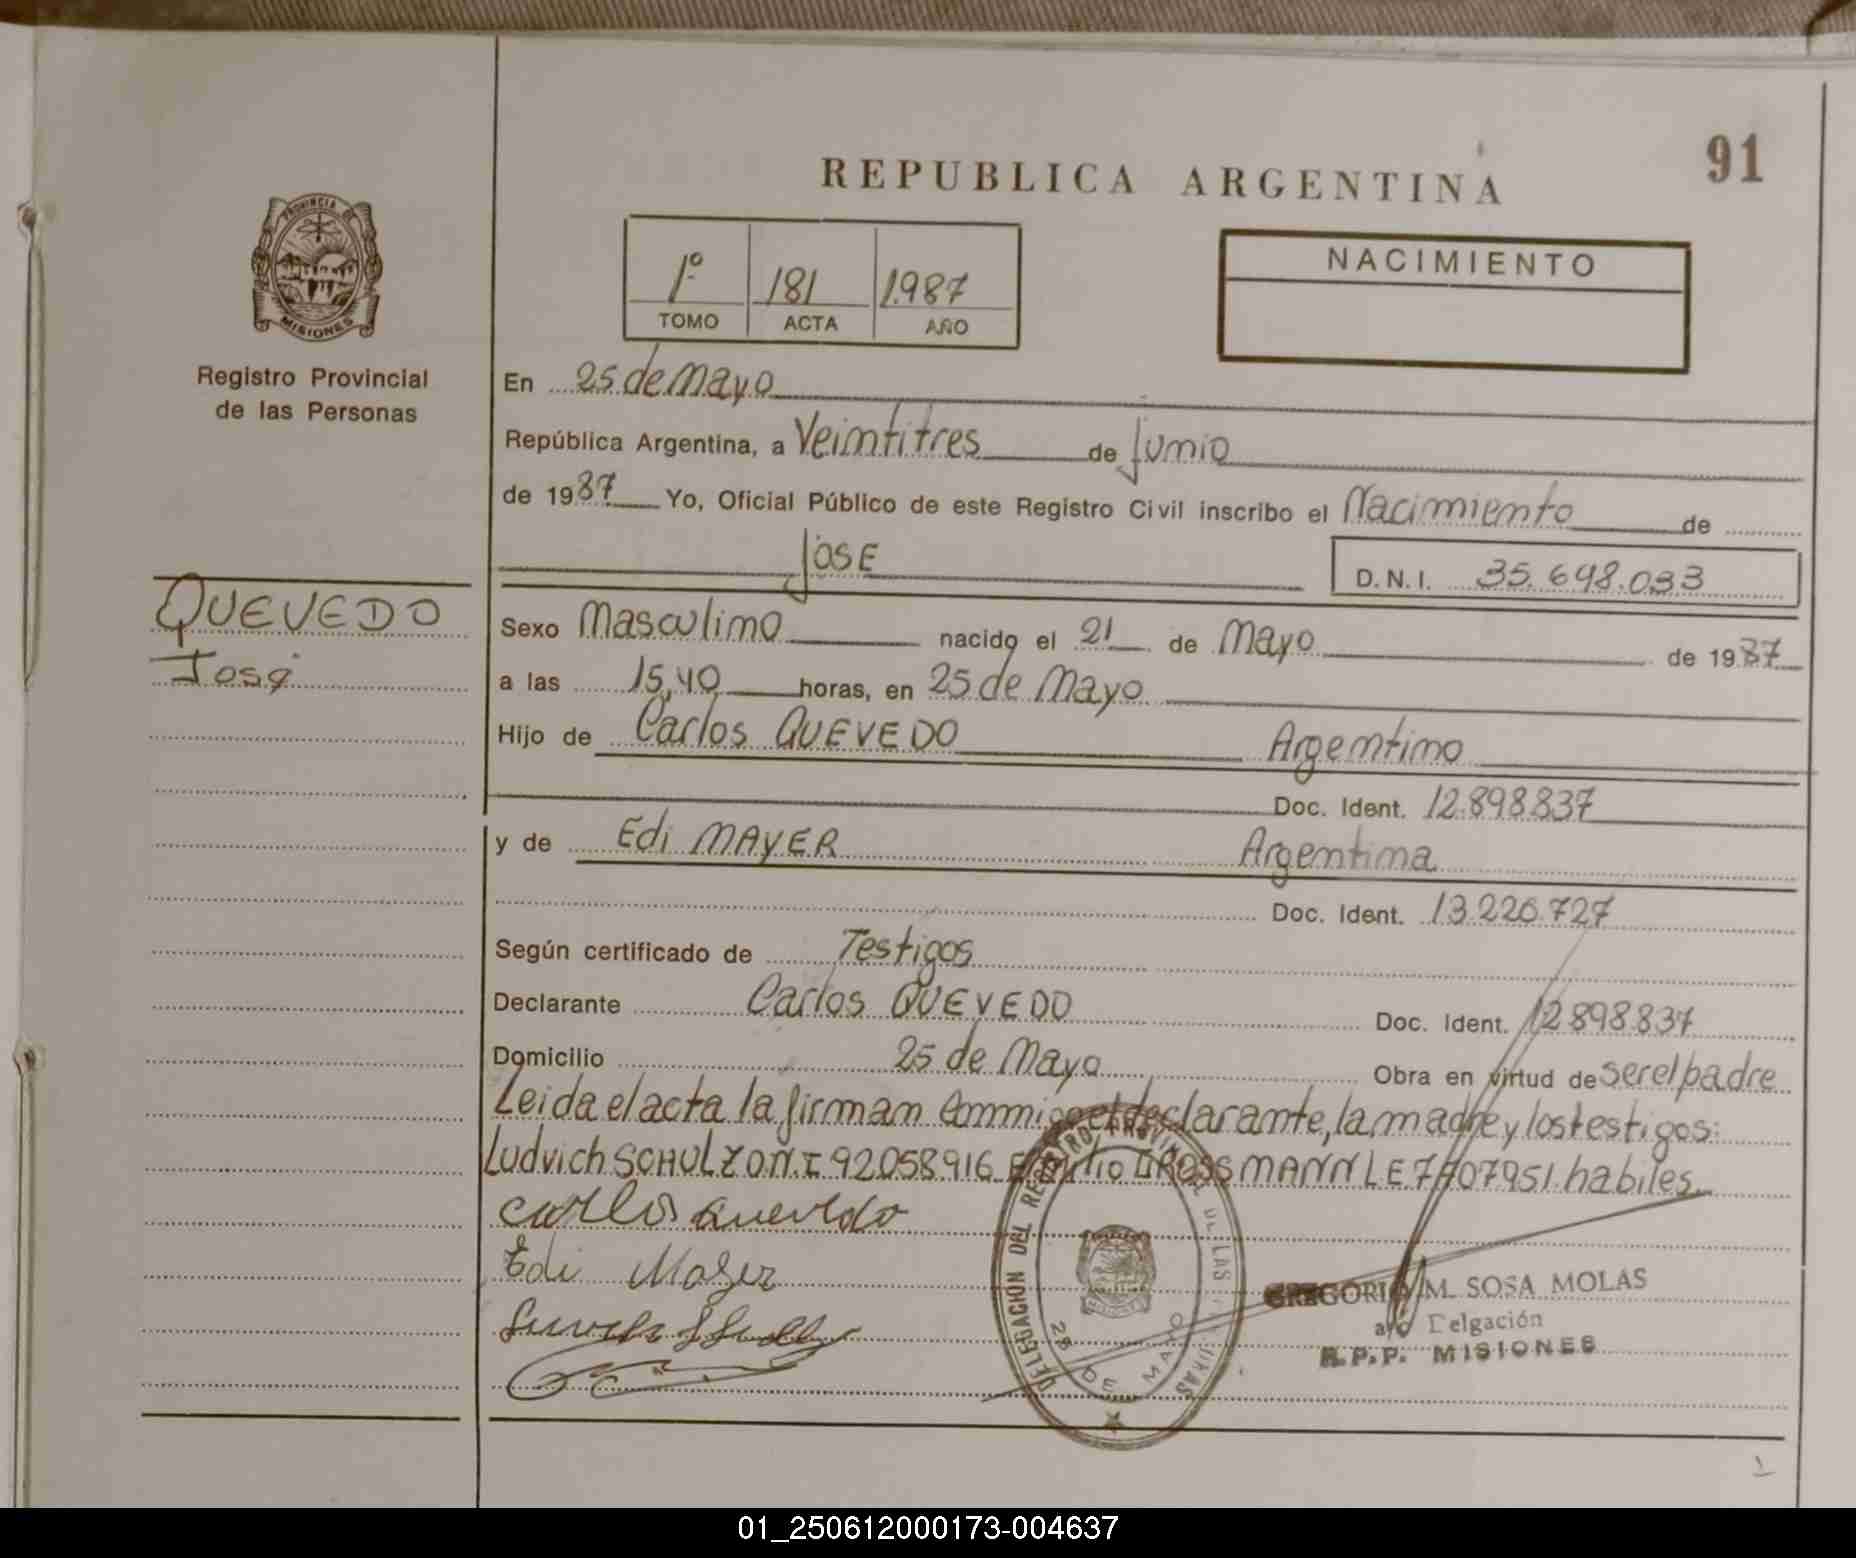 91
REPUBLICA ARGENTINA
PROVINCIA DE
MISIONES
Registro Provincial
de las Personas
1º 181 1.987
TOMO ACTA AÑO
NACIMIENTO
En 25 de Mayo
República Argentina, a Veintitres de Junio
de 1987 Yo, Oficial Público de este Registro Civil inscribo el Nacimiento de
José
D.N.I. 35.698.033
QUEVEDO
José
Sexo Masculino nacido el 21 de Mayo de 1987
a las 15,40 horas, en 25 de Mayo
Hijo de Carlos QUEVEDO Argentino
Doc. Ident. 12.898.837
y de Edi MAYER Argentina
Doc. Ident. 13.226.727
Según certificado de Testigos
Declarante Carlos QUEVEDO Doc. Ident. 12898837
Domicilio 25 de Mayo Obra en virtud de ser el padre
Leida el acta la firman Conmigo el declarante, la madre y los testigos:
Ludvich SCHULZ D.N.I 92058916 Emilio GROSSMANN LE 7407951 habiles.
Carlos Quevedo
Edi Mayer
DELEGACION DEL REGISTRO PROVINCIAL DE LAS PERSONAS
25 DE MAYO
GREGORIO M. SOSA MOLAS
a/c Delgación
R.P.P. MISIONES
01_250612000173-004637